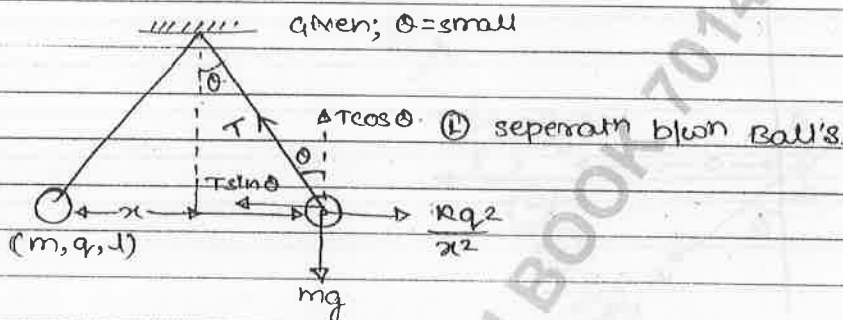 Given; θ = small
θ
T
Tcosθ
① seperatn b/wn Ball's.
θ
Tsinθ
x
kq²/x²
(m, q, l)
mg
BOOK 7014